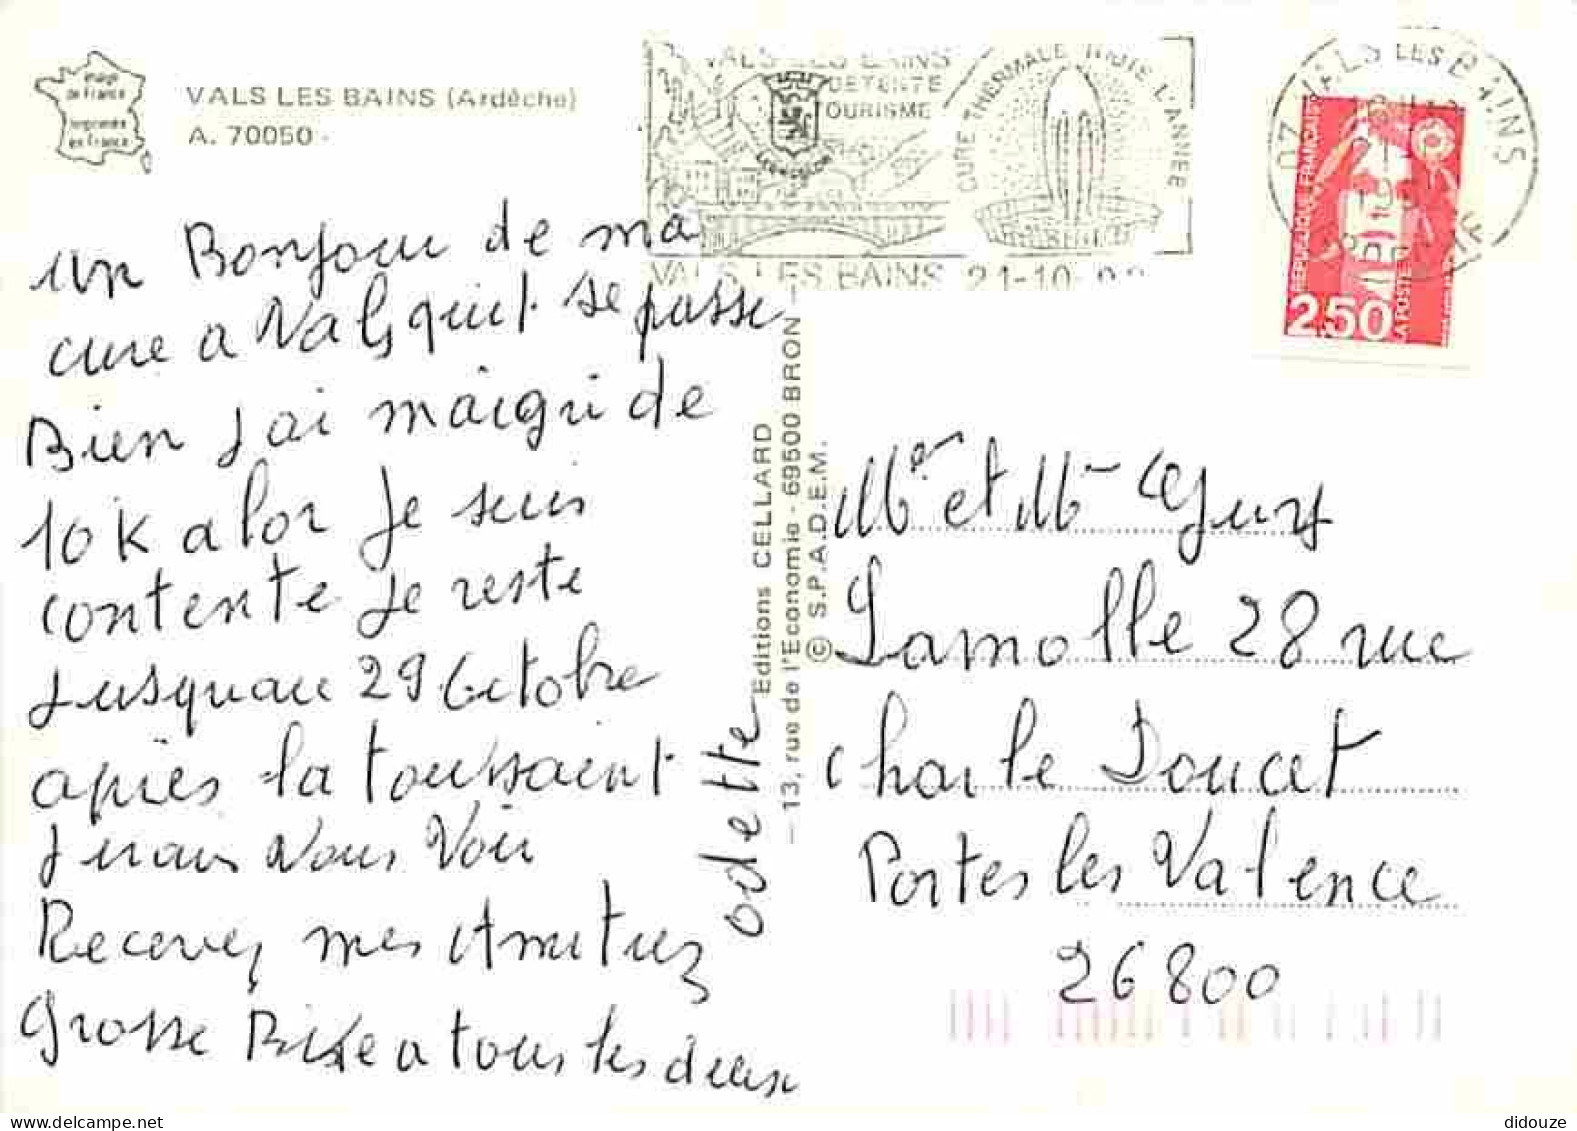 image
de France
Imprimée
en France
VALS LES BAINS (Ardèche)
A. 70050
VALS LES BAINS
DETENTE
TOURISME
CURE THERMALE TOUTE L'ANNEE
VALS LES BAINS 21-10
07 VALS LES BAINS
REPUBLIQUE FRANÇAISE
2,50
LA POSTE
un Bonjour de ma
cure a Vals quit se passe
Bien J ai maigri de
10 K alor Je suis
contente Je reste
Jusquau 29 Octobre
après la toussaint
J irais Vous Voir
Recevez mes Amitiez
Grosse Bise a tous les deux
odette
Editions CELLARD
13, rue de l'Economie - 69500 BRON
© S.P.A.D.E.M.
Mr et Mme Guy
Lamolle 28 rue
Charle Doucet
Portes les Valence
26800
didouze